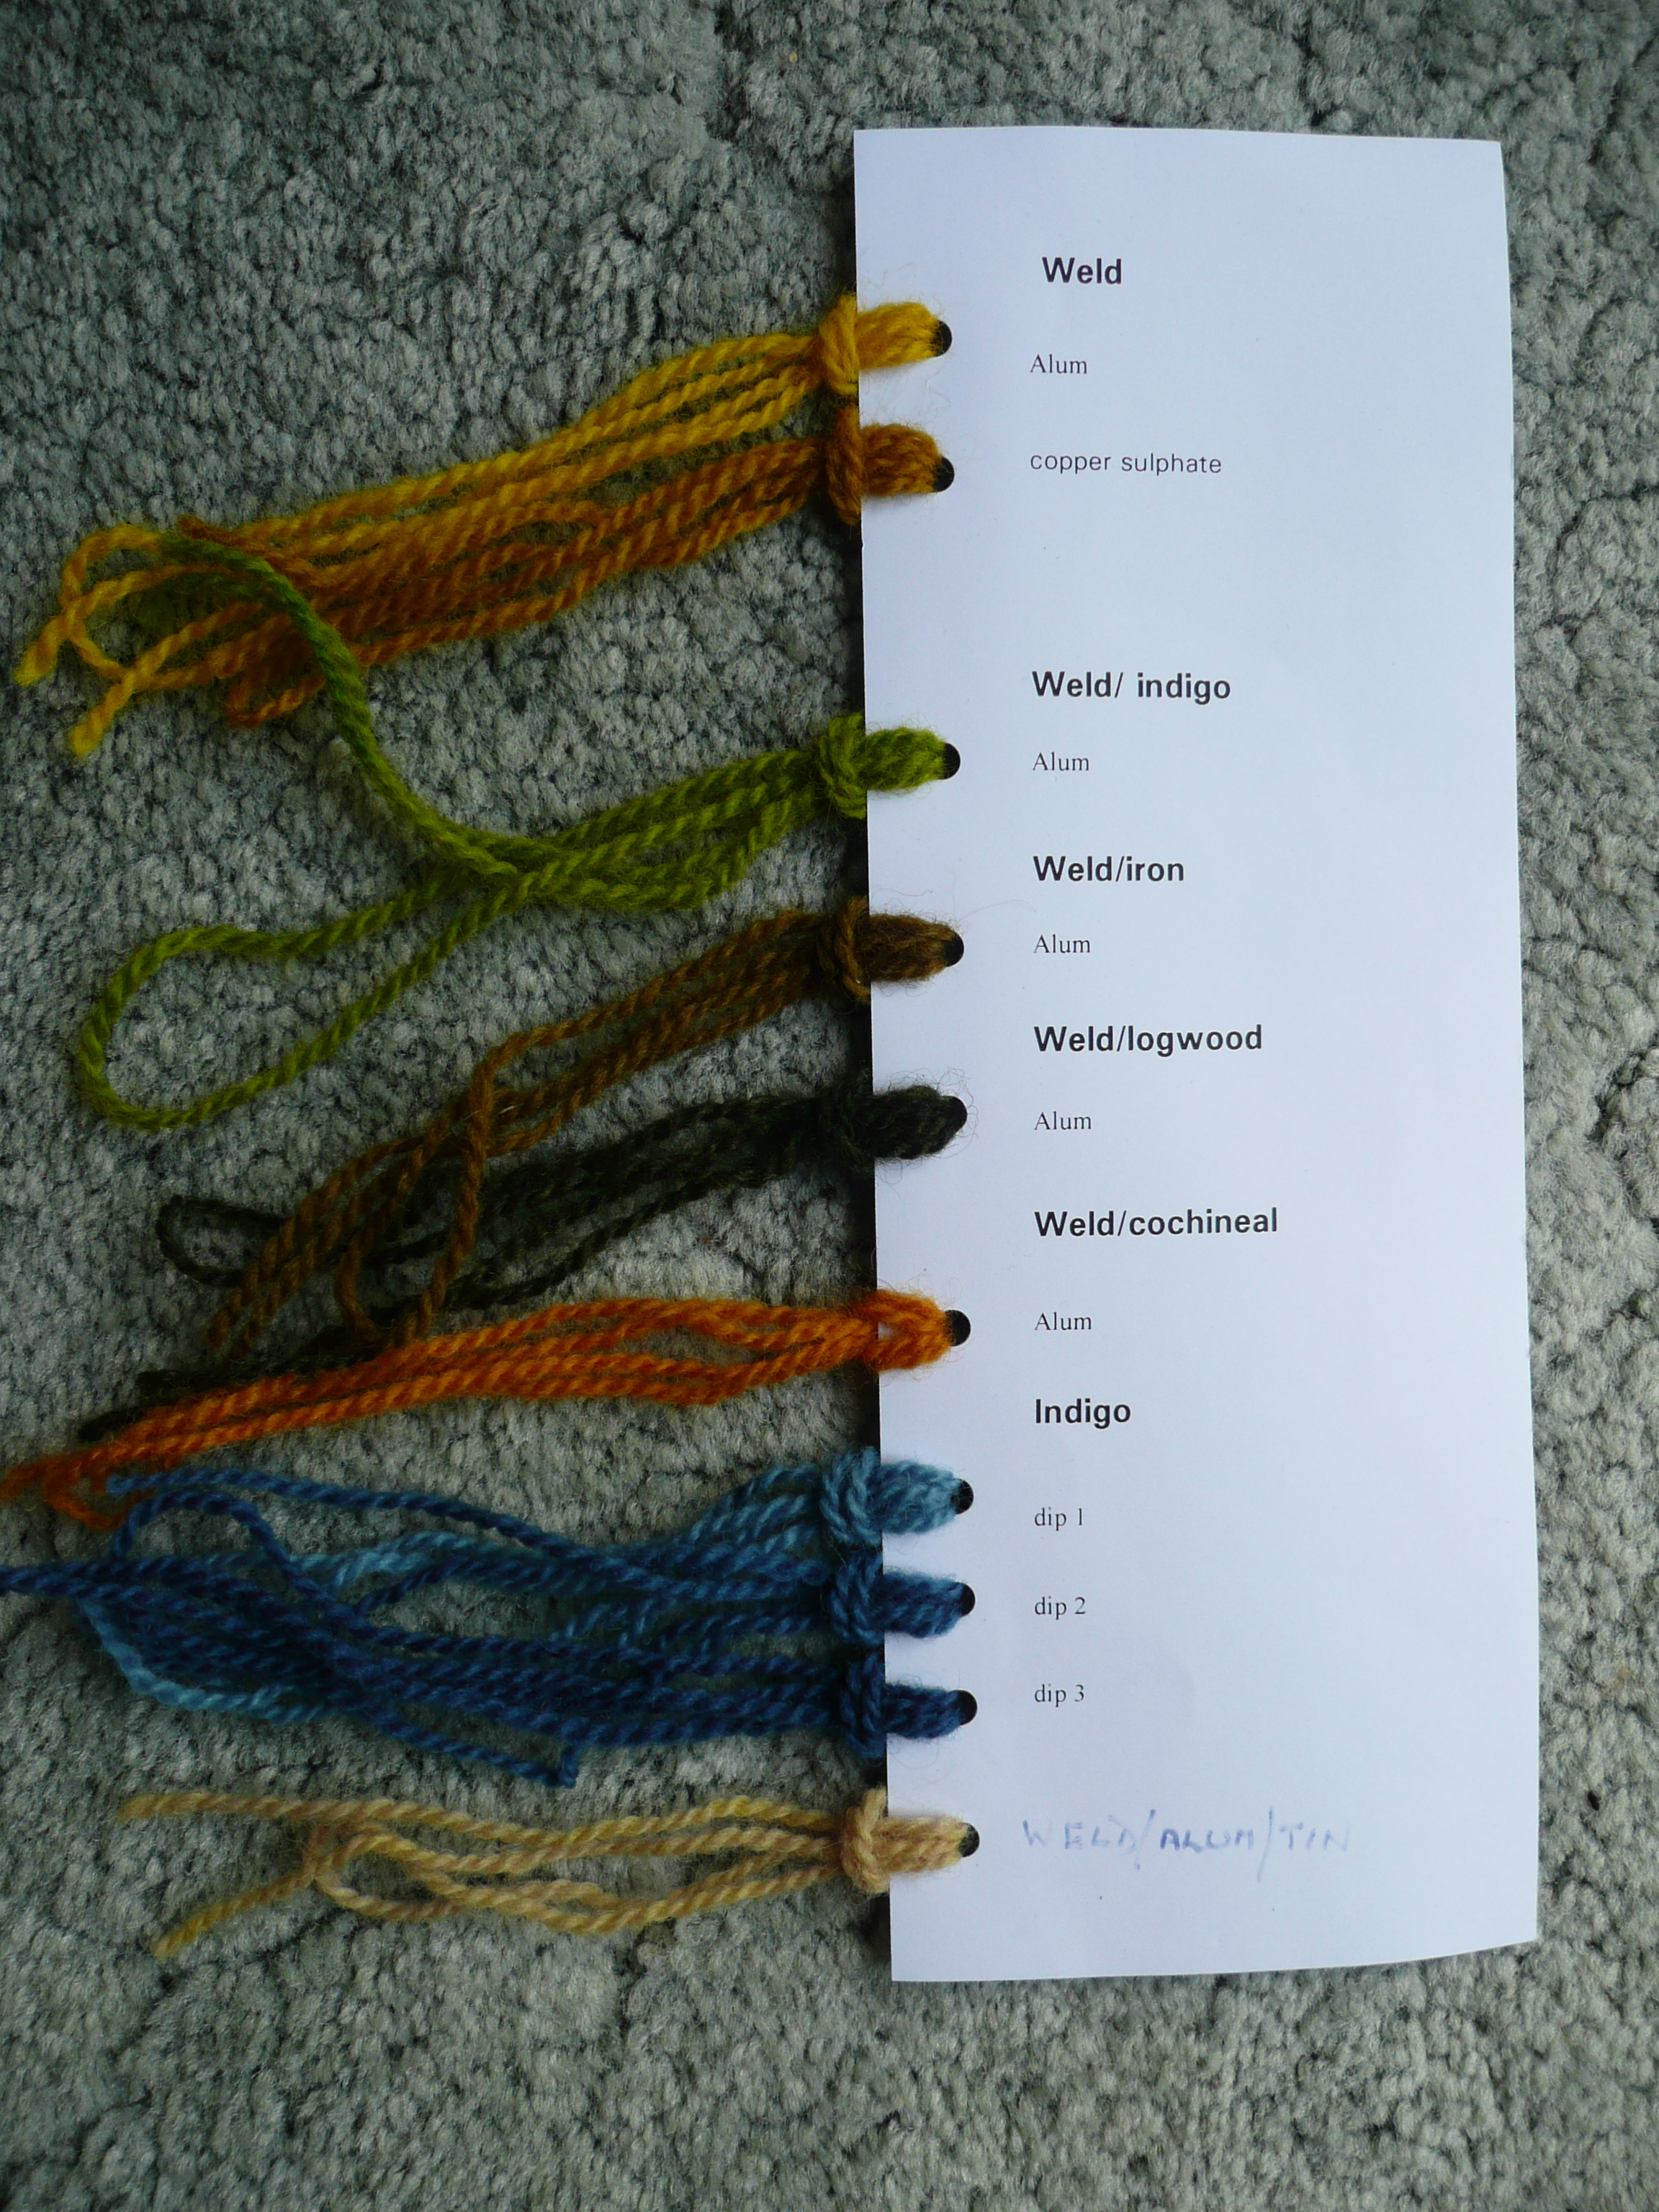 Weld
Alum
copper sulphate
Weld/ indigo
Alum
Weld/iron
Alum
Weld/logwood
Alum
Weld/cochineal
Alum
Indigo
dip 1
dip 2
dip 3
WELD/ALUM/TIN